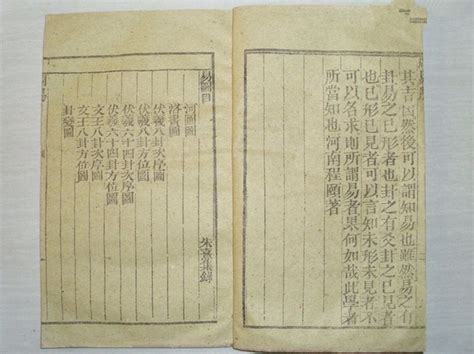 其吉凶然後可以謂知易也雖然易有
卦易之已形者也卦之有爻卦之已見者
也已形已見者可以言知未形未見者不
可以名求則所謂易者果何如哉此學者
所當知也河南程頤著
易圖目
朱熹集錄
河圖圖
洛書圖
伏羲八卦次序圖
伏羲八卦方位圖
伏羲六十四卦次序圖
伏羲六十四卦方位圖
文王八卦次序圖
文王八卦方位圖
卦變圖